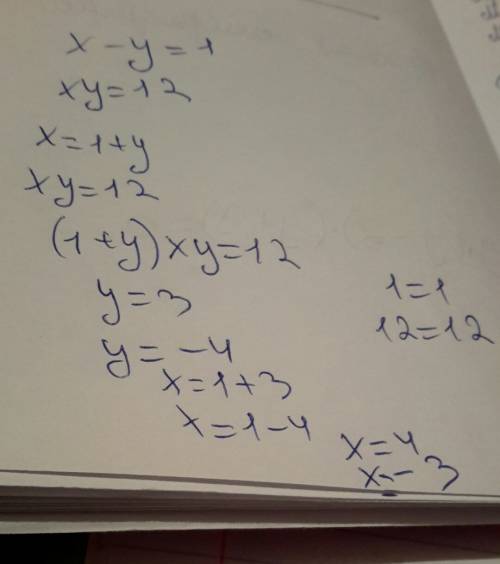 x - y = 1
xy = 12
x = 1 + y
xy = 12
(1 + y) x y = 12
y = 3
y = -4
x = 1 + 3
x = 1 - 4
1 = 1
12 = 12
x = 4
x = - 3